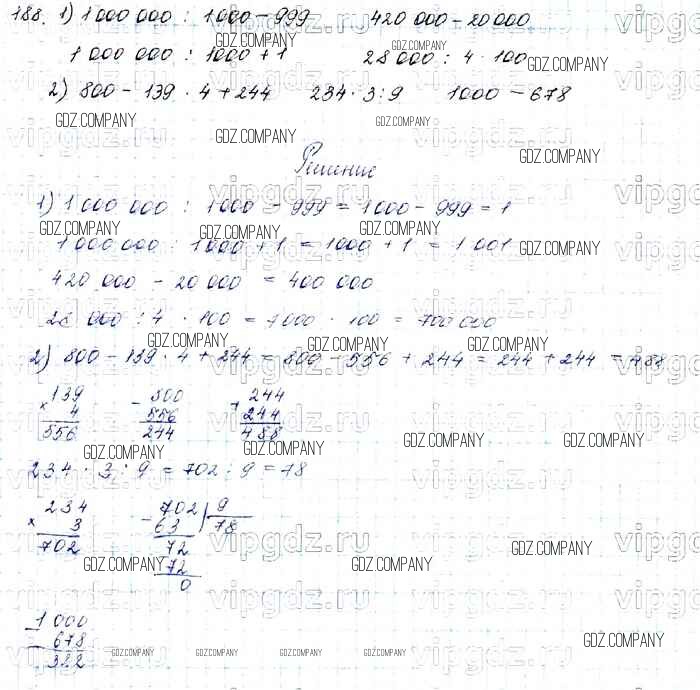 188. 1) 1 000 000 : 1000 - 999 420 000 - 20 000
1 000 000 : 1000 + 1 28 000 : 4 · 100
2) 800 - 139 · 4 + 244 234 · 3 : 9 1000 - 678
Решение
1) 1 000 000 : 1000 - 999 = 1000 - 999 = 1
1 000 000 : 1000 + 1 = 1000 + 1 = 1 001
420 000 - 20 000 = 400 000
28 000 : 4 · 100 = 7000 · 100 = 700 000
2) 800 - 139 · 4 + 244 = 800 - 556 + 244 = 244 + 244 = 488
139 - 800 244
× 4 556 + 244
556 244 488
234 · 3 : 9 = 702 : 9 = 78
234 - 702 9
× 3 63 78
702 72
72
0
- 1 000
678
322
GDZ.COMPANY
vipgdz.ru